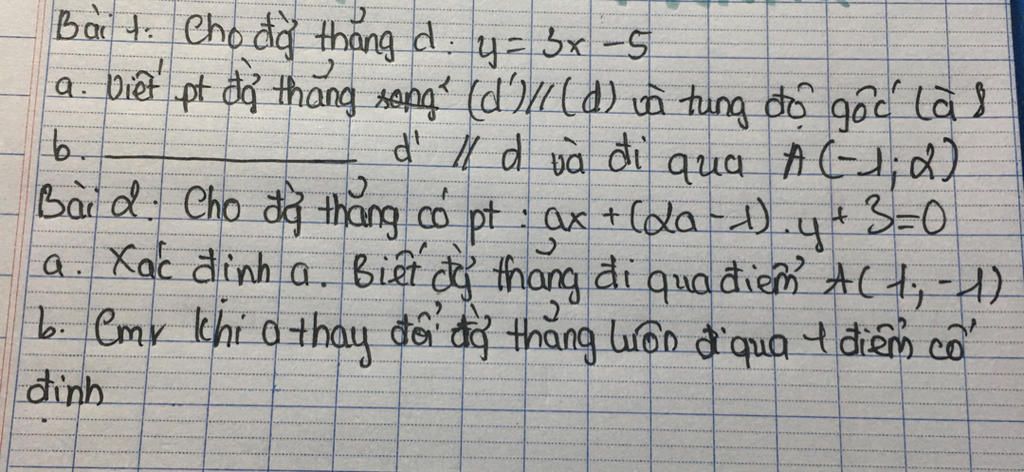 Bài 1. Cho đg̉ thẳng d: y = 3x - 5
a. Viết pt đg̉ thẳng (d')//(d) và tung độ gốc là 8
b. ____________ d' // d và đi qua A(-1; 2)
Bài 2. Cho đg̉ thẳng có pt: ax + (2a - 1).y + 3 = 0
a. Xác định a. Biết đg̉ thẳng đi qua điểm A(1; -1)
b. Cmr khi a thay đổi đg̉ thẳng luôn đi qua 1 điểm cố
định